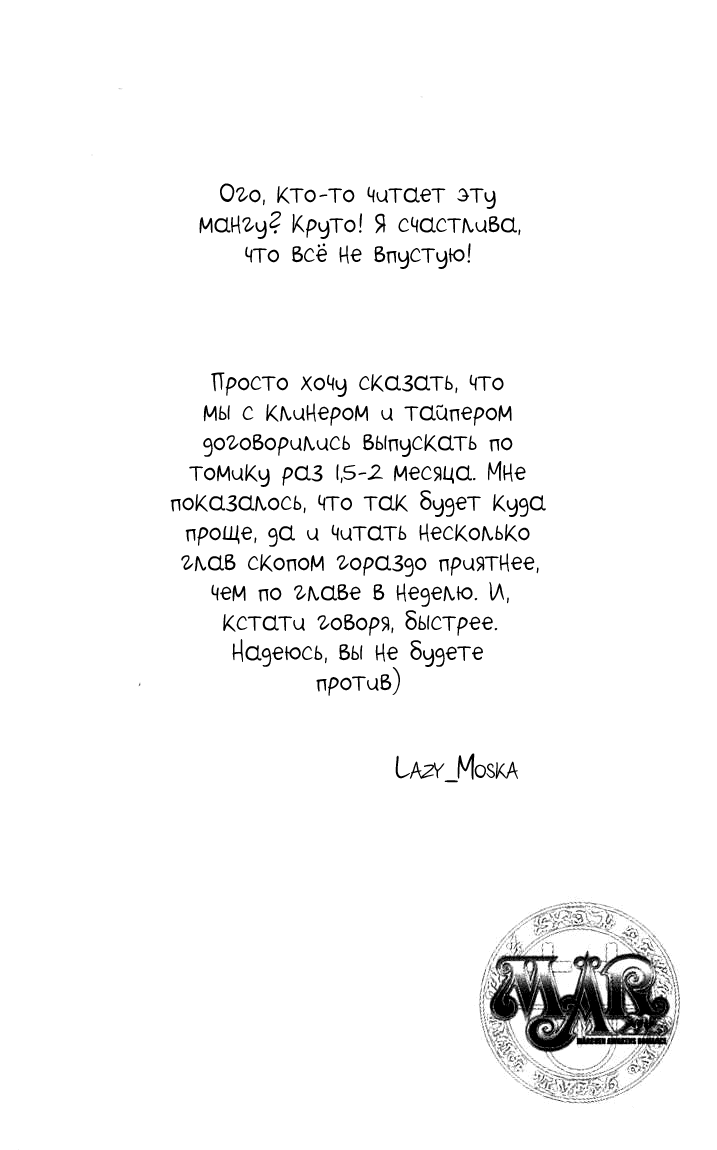 Ого, кто-то читает эту
мангу? Круто! Я счастлива,
что всё не впустую!
Просто хочу сказать, что
мы с клинером и тайпером
договорились выпускать по
томику раз 1,5-2 месяца. Мне
показалось, что так будет куда
проще, да и читать несколько
глав скопом гораздо приятнее,
чем по главе в неделю. И,
кстати говоря, быстрее.
Надеюсь, вы не будете
против)
Lazy_Moska
MÄR
MÄRCHEN AWAKENS ROMANCE